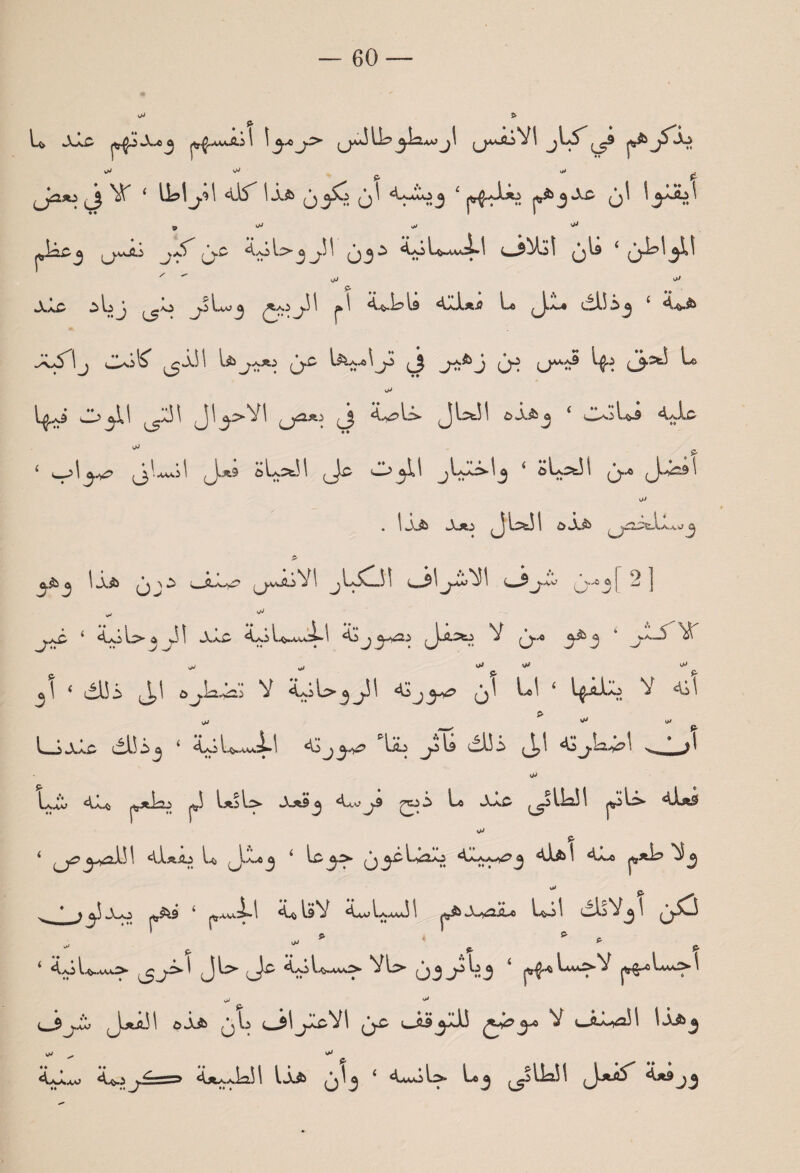 — 60 —
بذكرهم في كبار الأنفس ارسطوطاليس حرموا أنفسهم ومدنهم عند ما
أيقنوا ان عدوهم يغلبهم ‘ وخشية أن يكون هذا كله افراطا ‘ الا في بعض
المواطن ‘ فان اتلاف الجسمانية دون الروحانية عن كبر نفس وعظم
همة ‘ وذلك مثل ما فعلت فاطمة أم الربيع وسائر بني زياد عند
ما لحق بها قيس بن زهير في تراميها عن بعيرها الذي كانت راكبة
عليه فماتت ‘ وهذه الحال خاصة في بعض الأحوال التي الموت فيها
أفضل من الحياة ‘ واختيار الموت على الحياة فعل انساني صواب ‘
وسنلخص هذه الحال بعد هذا .
[ 2 ] ومن شرف الاشراف الكبار الأنفس صنف دون هذا وهو
الأكثر ‘ وهو من لا يحفل بصورته الجسمانية عند الروحانية ‘ غير
أنه لا يتلفها ‘ اما أن صورته الروحانية لا تضطره الى ذلك ‘ أو
أوجب اضطراره الى ذلك فآثر بقاء صورته الجسمانية ‘ وذلك عندنا
فعله حاتم الطائي عند ما ذبح فرسه وقعد جائعا لم يطعم منه شيئا
ولا طعم منه أهله وصبيته يتضاعون جوعا ‘ ومثل ما يفعله اللصوص ‘
لكن أولائك انما مقصدهم السياسة لاقامة الجسم ‘ فهم
أجسامهم لأجسامهم ‘ ويأثرون حالا جسمانية على حال أخرى جسمانية ‘
وهذا الصنف لا موضع للتوقف عن الاعتراف بأن هذا الفعل شرف
ورفعة كفعل الطائي وما جانسه ‘ وأن هذا الطبيعة كريمة سنية